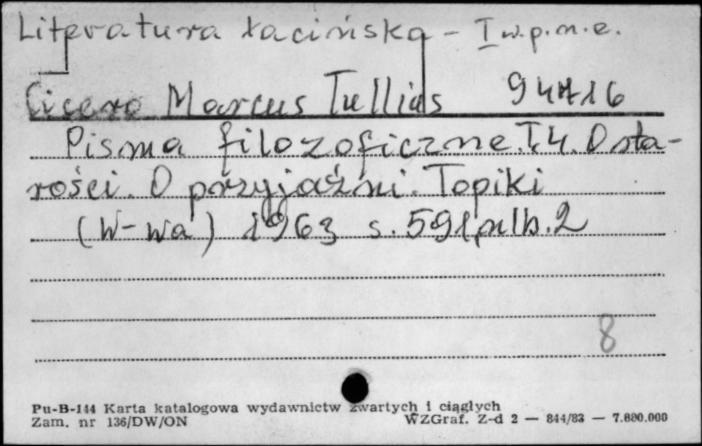 Literatura łacińska - I w.p.n.e.
Cicero Marcus Tullius 94416
Pisma filozoficzne. T.4. O sta-
rości. O przyjaźni. Topiki
(W-wa) 1963 s. 591, nlb. 2
8
Pu-B-144 Karta katalogowa wydawnictw zwartych i ciągłych
Zam. nr 136/DW/ON WZGraf. Z-d 2 — 844/83 — 7.800.000